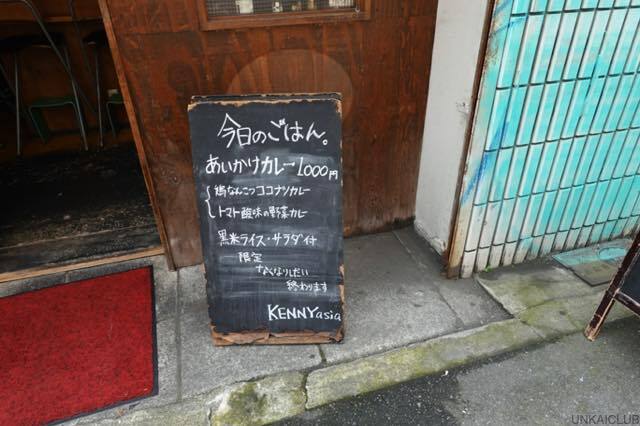 今日のごはん。
あいがけカレー 1,000円
鶏なんこつココナツカレー
トマト酸味の野菜カレー
黒米ライス・サラダ付
限定
なくなりしだい
終わります
KENNY asia
UNKAICLUB